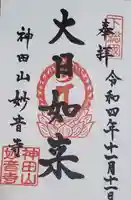 奉拝
令和四年十一月十一日
下総國
大日如来
神田山妙音寺
神田山
妙音寺